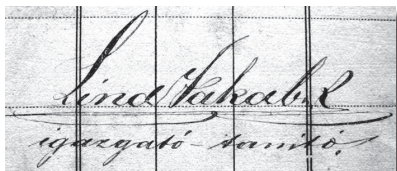 Lind Jakab
igazgató-tanító.